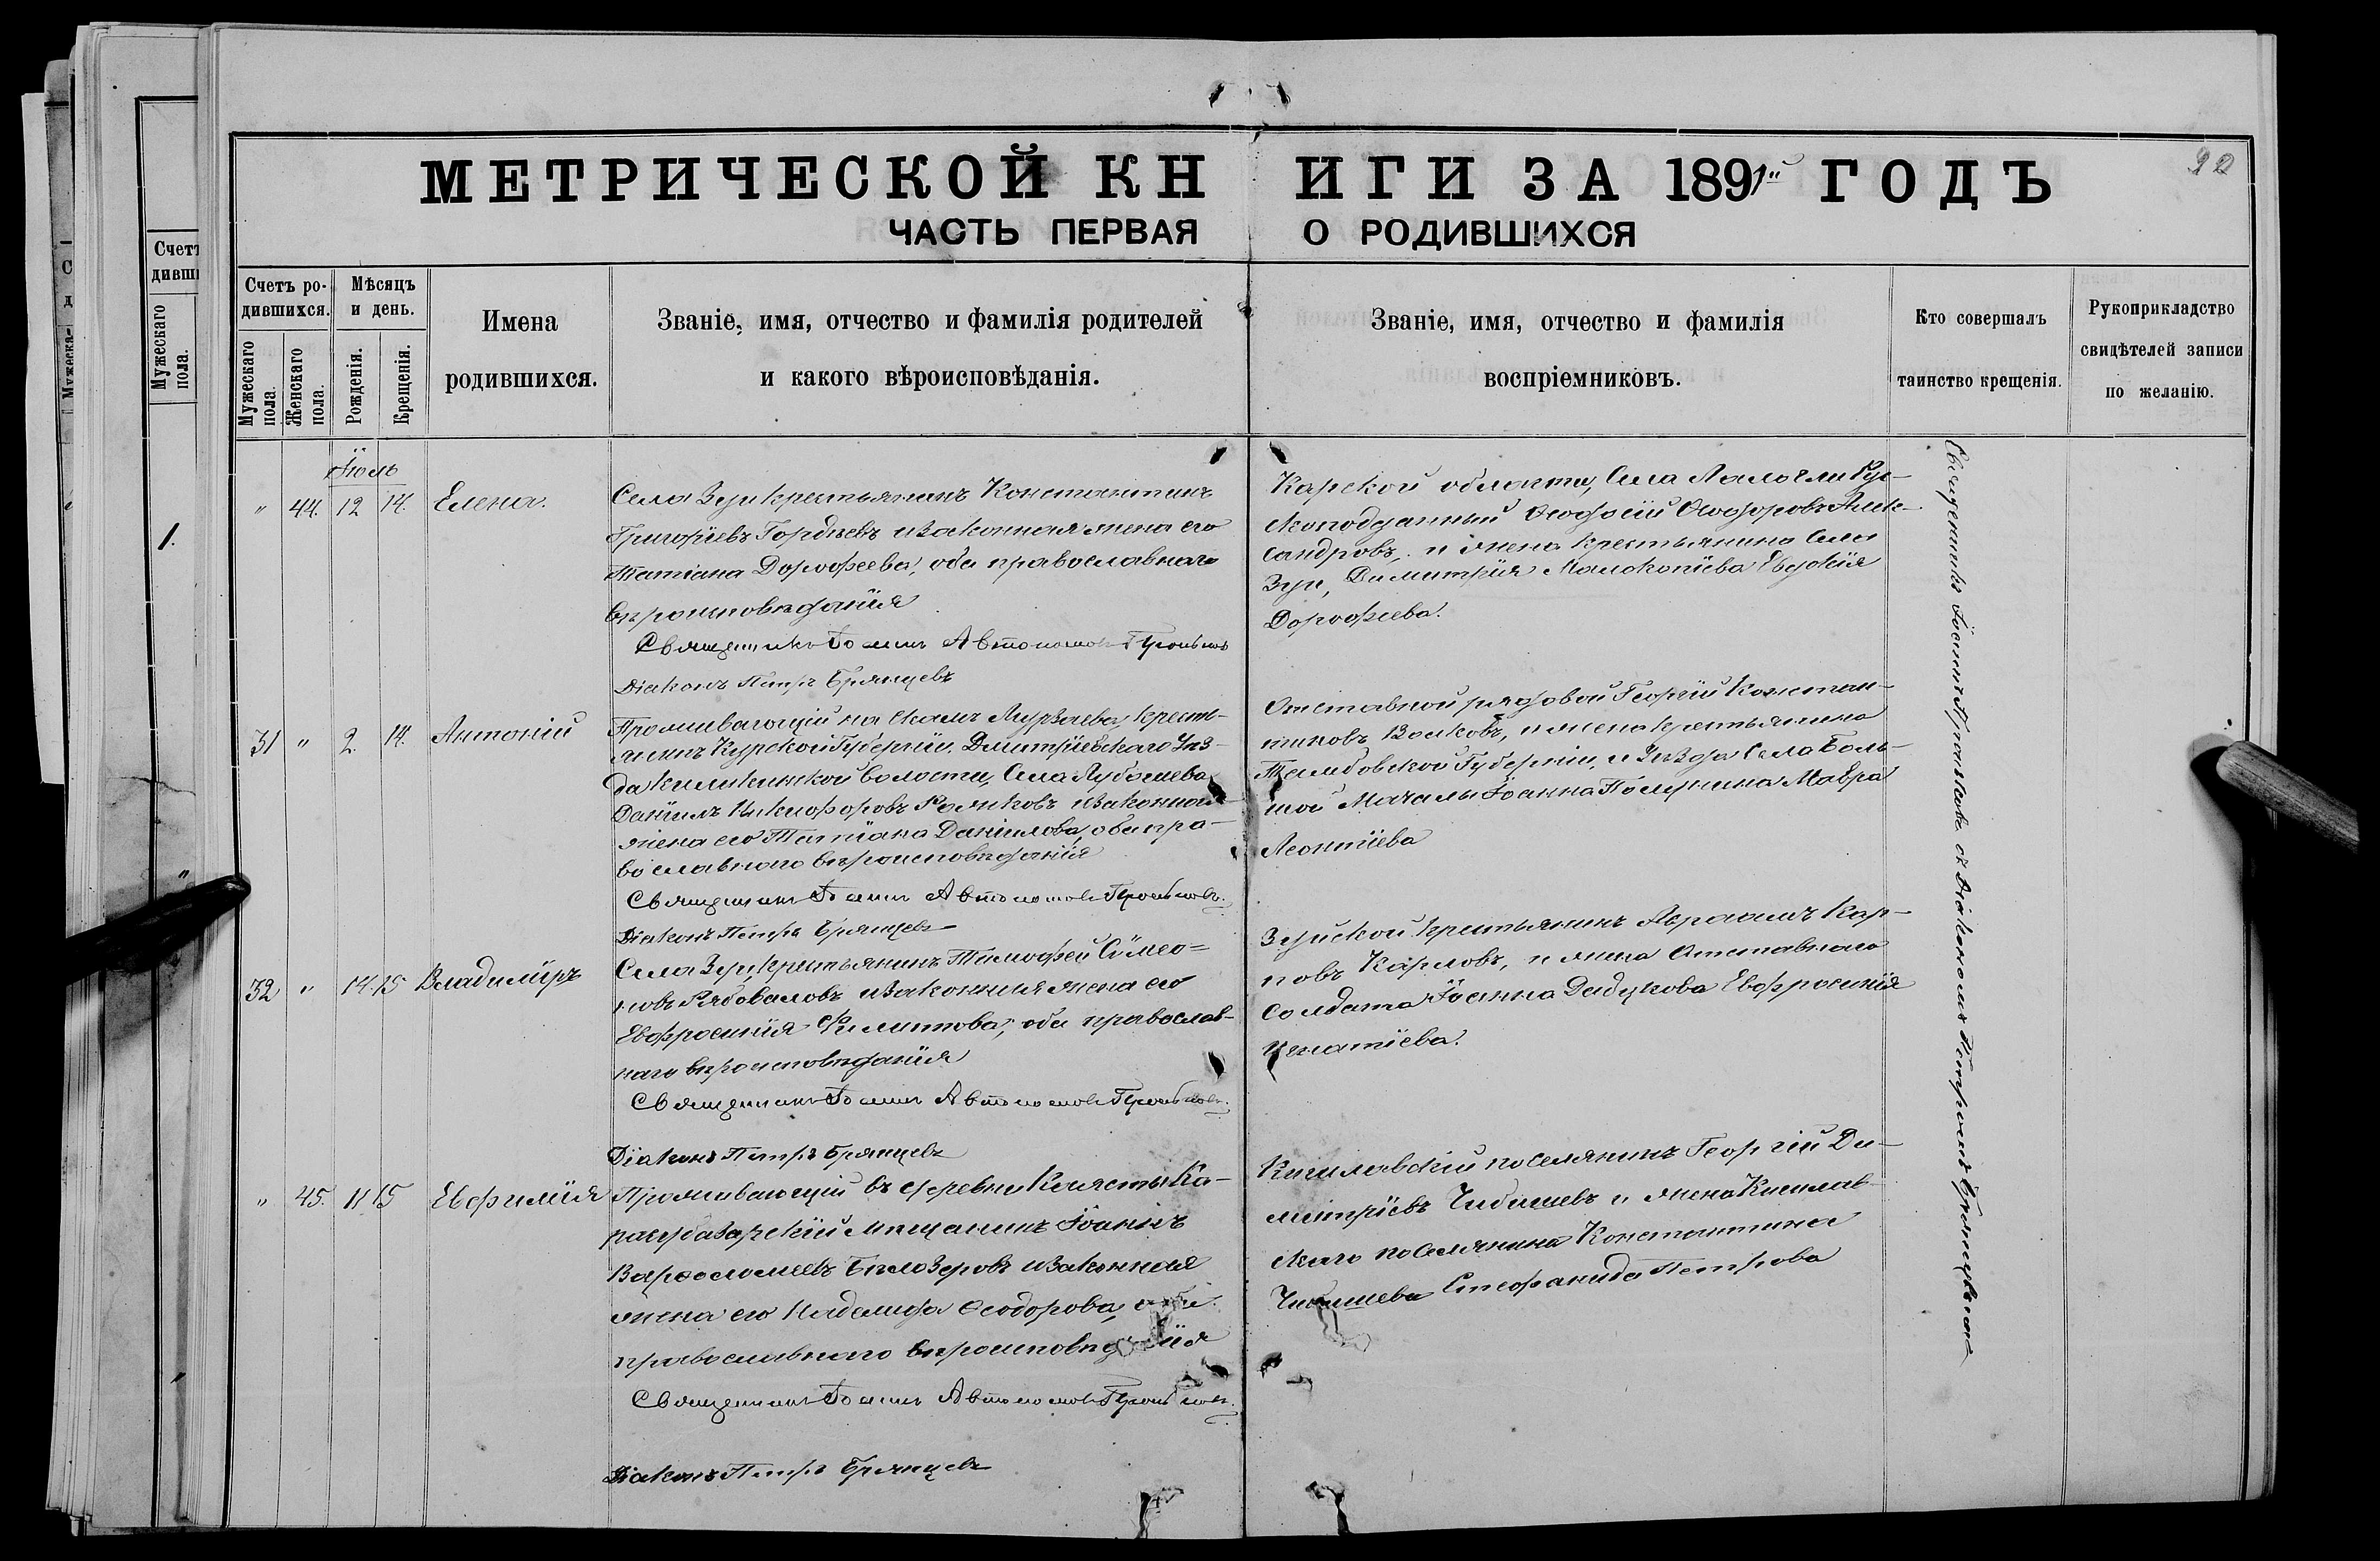 МЕТРИЧЕСКОЙ КНИГИ ЗА 1891й ГОДЪ
20
ЧАСТЬ ПЕРВАЯ О РОДИВШИХСЯ
Счетъ родившихся.
Мужескаго пола.
Женскаго пола.
Мѣсяцъ и день.
Рожденія.
Крещенія.
Имена
родившихся.
Званіе, имя, отчество и фамилія родителей
и какого вѣроисповѣданія.
Званіе, имя, отчество и фамилія
воспріемниковъ.
Кто совершалъ
таинство крещенія.
Рукоприкладство
свидѣтелей записи
по желанію.
Іюль
" 44. 12 14. Елена.
Села Зуи крестьянинъ Константинъ
Григоріевъ Гордѣевъ и законная жена его
Татіана Дорофеева, оба православнаго
вѣроисповѣданія
Священникъ Іоаннъ Автономовъ
Діаконъ Петръ Брянцевъ
Карской области, Села Рус-
скоподданный Ѳеодосій Ѳеодоровъ Алек-
сандровъ, и жена крестьянина Села
Зуи, Димитрія Евдокія
Дорофѣева.
31 " 2. 14. Антоній
Проживающій на Крест-
янинъ Курской Губерніи, Дмитріевскаго Уѣз-
да волости, Села
Даніилъ Никифоровъ и законная
жена его Татіана Даніилова, оба пра-
вославнаго вѣроисповѣданія
Священникъ Іоаннъ Автономовъ
Діаконъ Петръ Брянцевъ
Отставной рядовой Георгій Констан-
тиновъ Волковъ, и жена крестьянина
Тамбовской Губерніи, и Уѣзда Села Боль-
шой Іоанна Полунина Мавра
Леонтіева
32 " 14. 15 Владиміръ
Села Зуи, крестьянинъ Тимофей Сѵмео-
новъ Рябоваловъ и законная жена его
Евфросинія Филиппова, оба православ-
наго вѣроисповѣданія
Священникъ Іоаннъ Автономовъ
Діаконъ Петръ Брянцевъ
Зуйской крестьянинъ Авраамъ Кар-
повъ Карповъ, и жена Отставнаго
Солдата Іоанна Евфросинія
Игнатіева.
" 45. 11 15 Евфимія
Проживающій въ деревни Ка-
расубазарскій мѣщанинъ Іоаннъ
Варѳоломеевъ Бѣлозеровъ и законная
жена его Надежда Ѳеодорова, оба
православнаго вѣроисповѣданія
Священникъ Іоаннъ Автономовъ
Діаконъ Петръ Брянцевъ
Кишлавскій поселянинъ Георгій Ди-
митріевъ Чибишевъ и жена Кишлав-
скаго поселянина Константина
Чибишева Стефанида Петрова
Священникъ Іоаннъ съ Діакономъ Петромъ Брянцевымъ
Счетъ
дивши
Мужескаго
пола.
1.